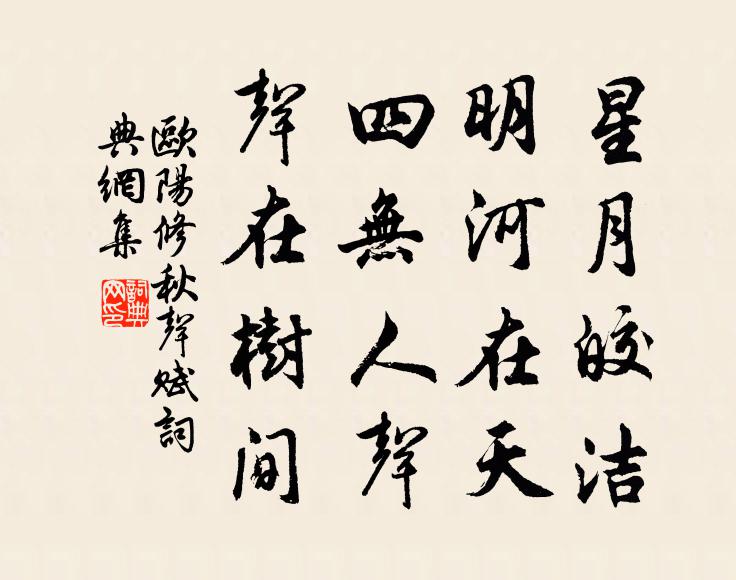 星月皎洁
明河在天
四無人聲
聲在樹間
歐陽修秋聲賦詞
典網集
詞典
网印